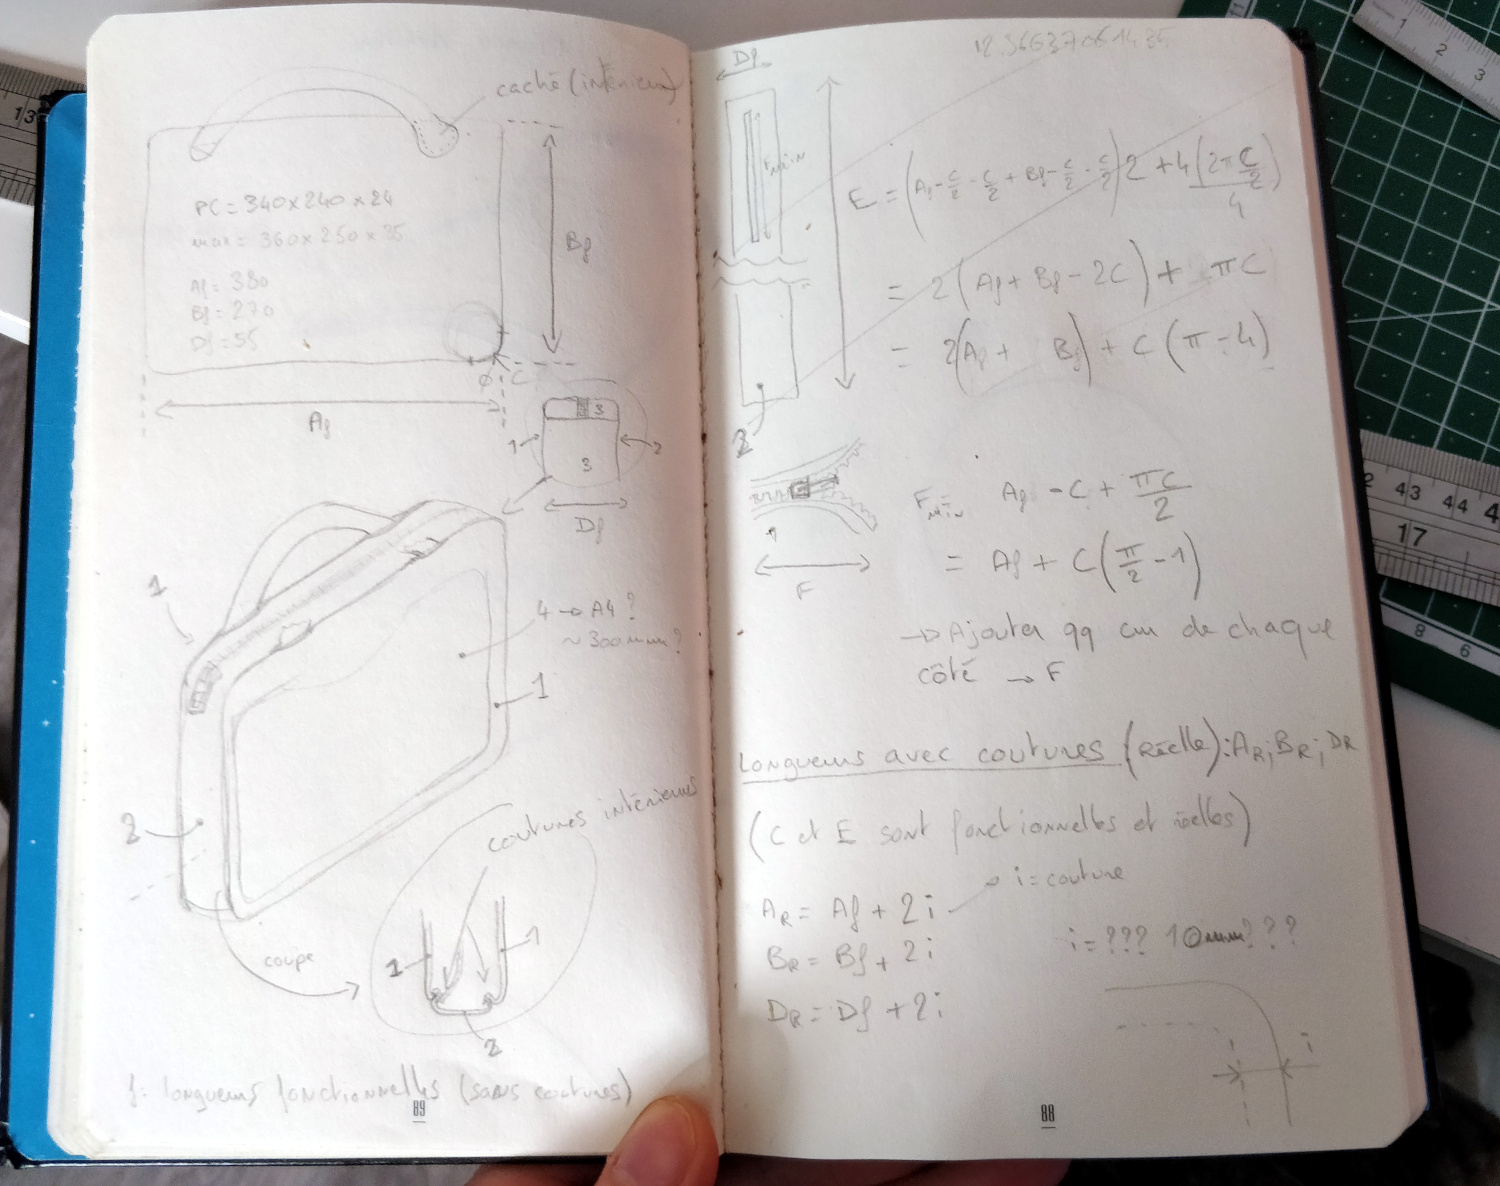 caché (intérieur)
PC = 340x240x24
max = 360x250x35
Af = 380
Bf = 270
Df = 55
Bf
C
Af
3
1
2
3
Df
1
4 → A4 ?
~ 300 mm ?
1
2
coutures intérieures
coupe
1
1
2
f: longueurs fonctionnelles (sans coutures)
89
Df
Fmin
2
E = (Af - C/2 - C/2 + Bf - C/2 - C/2) 2 + 4 (2π C/2)/4
= 2 (Af + Bf - 2C) + πC
= 2(Af + Bf) + C (π - 4)
Fmin Af - C + πC/2
= Af + C (π/2 - 1)
F
→ Ajouter qq cm de chaque
côté → F
Longueurs avec coutures (réelle) : AR, BR, DR
(C et E sont fonctionnelles et réelles)
i = couture
AR = Af + 2i
BR = Bf + 2i
DR = Df + 2i
i = ??? 10mm???
i
88
13
1
2
3
2 43 44 4
17
8
6